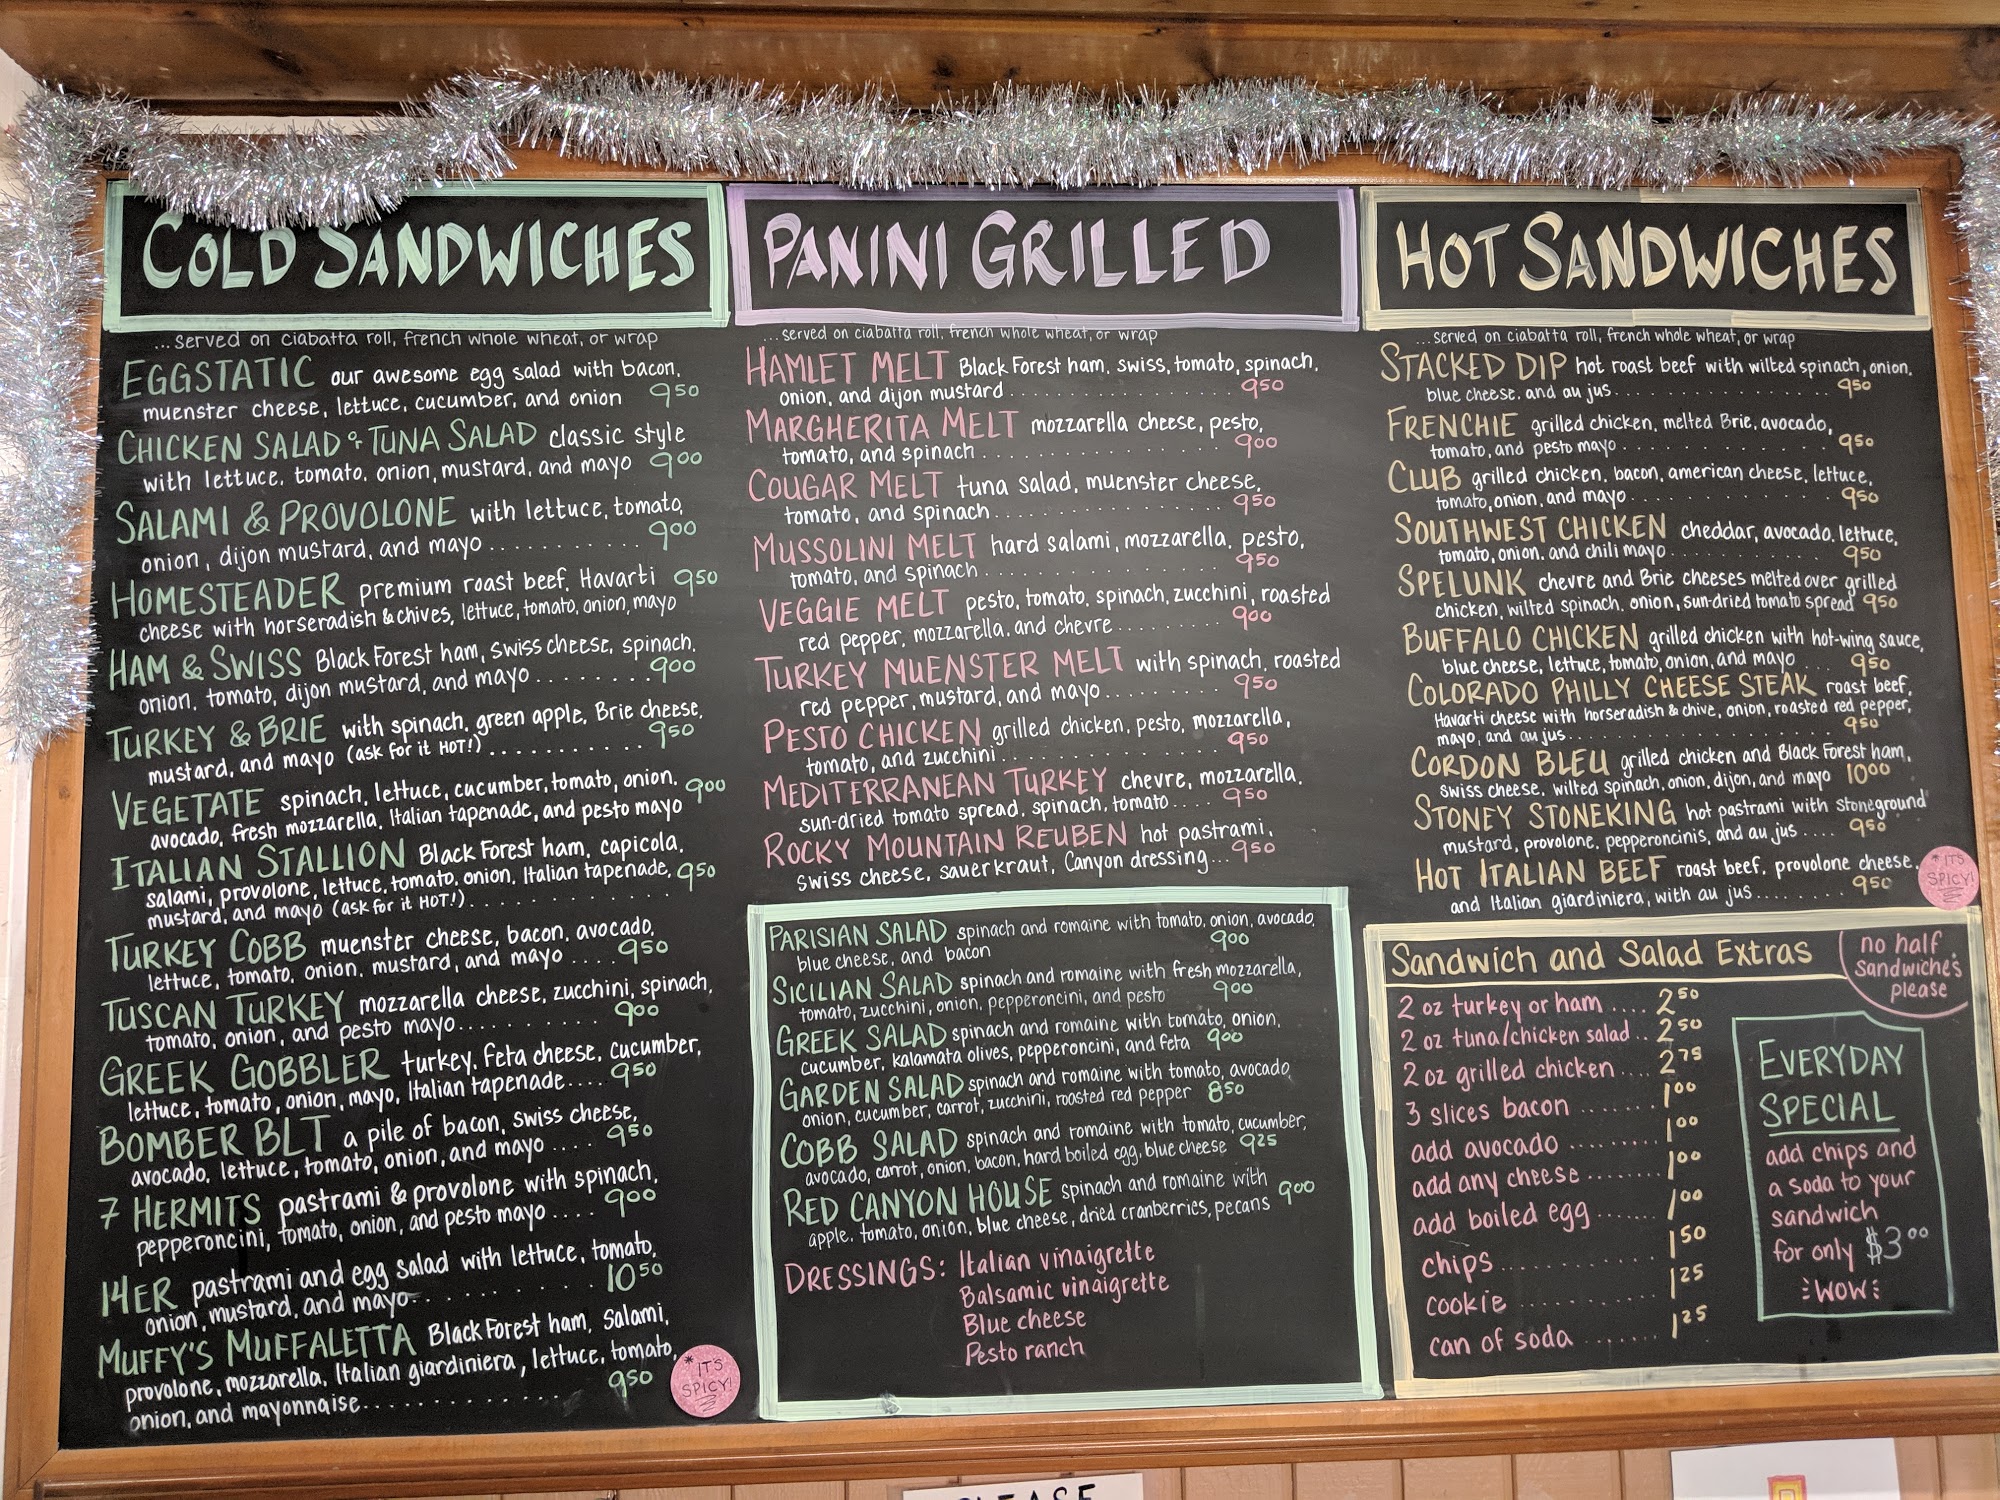 COLD SANDWICHES
...served on ciabatta roll, french whole wheat, or wrap
EGGSTATIC our awesome egg salad with bacon,
muenster cheese, lettuce, cucumber, and onion 950
CHICKEN SALAD or TUNA SALAD classic style
with lettuce, tomato, onion, mustard, and mayo 900
SALAMI & PROVOLONE with lettuce, tomato,
onion, dijon mustard, and mayo .......... 900
HOMESTEADER premium roast beef, Havarti 950
cheese with horseradish & chives, lettuce, tomato, onion, mayo
HAM & SWISS Black Forest ham, swiss cheese, spinach,
onion, tomato, dijon mustard, and mayo ........ 900
TURKEY & BRIE with spinach, green apple, Brie cheese,
mustard, and mayo (ask for it HOT!) ........... 950
VEGETATE spinach, lettuce, cucumber, tomato, onion, 900
avocado, fresh mozzarella, Italian tapenade, and pesto mayo
ITALIAN STALLION Black Forest ham, capicola,
salami, provolone, lettuce, tomato, onion, Italian tapenade, 950
mustard, and mayo (ask for it HOT!) ............
TURKEY COBB muenster cheese, bacon, avocado,
lettuce, tomato, onion, mustard, and mayo .... 950
TUSCAN TURKEY mozzarella cheese, zucchini, spinach,
tomato, onion, and pesto mayo .......... 900
GREEK GOBBLER turkey, feta cheese, cucumber,
lettuce, tomato, onion, mayo, Italian tapenade .... 950
BOMBER BLT a pile of bacon, swiss cheese,
avocado, lettuce, tomato, onion, and mayo .... 950
7 HERMITS pastrami & provolone with spinach,
pepperoncini, tomato, onion, and pesto mayo .... 900
14ER pastrami and egg salad with lettuce, tomato,
onion, mustard, and mayo .......... 1050
MUFFY'S MUFFALETTA Black Forest ham, salami,
provolone, mozzarella, Italian giardiniera, lettuce, tomato,
onion, and mayonnaise ............ 950
*IT'S
SPICY!
PANINI GRILLED
...served on ciabatta roll, french whole wheat, or wrap
HAMLET MELT Black Forest ham, swiss, tomato, spinach,
onion, and dijon mustard ............ 950
MARGHERITA MELT mozzarella cheese, pesto,
tomato, and spinach ............ 900
COUGAR MELT tuna salad, muenster cheese,
tomato, and spinach ............ 950
MUSSOLINI MELT hard salami, mozzarella, pesto,
tomato, and spinach ............ 950
VEGGIE MELT pesto, tomato, spinach, zucchini, roasted
red pepper, mozzarella, and chevre ........ 900
TURKEY MUENSTER MELT with spinach, roasted
red pepper, mustard, and mayo ........ 950
PESTO CHICKEN grilled chicken, pesto, mozzarella,
tomato, and zucchini ............ 950
MEDITERRANEAN TURKEY chevre, mozzarella,
sun-dried tomato spread, spinach, tomato .... 950
ROCKY MOUNTAIN REUBEN hot pastrami,
swiss cheese, sauerkraut, Canyon dressing ... 950
PARISIAN SALAD spinach and romaine with tomato, onion, avocado,
blue cheese, and bacon 900
SICILIAN SALAD spinach and romaine with fresh mozzarella,
tomato, zucchini, onion, pepperoncini, and pesto 900
GREEK SALAD spinach and romaine with tomato, onion,
cucumber, kalamata olives, pepperoncini, and feta 900
GARDEN SALAD spinach and romaine with tomato, avocado,
onion, cucumber, carrot, zucchini, roasted red pepper 850
COBB SALAD spinach and romaine with tomato, cucumber,
avocado, carrot, onion, bacon, hard boiled egg, blue cheese 925
RED CANYON HOUSE spinach and romaine with 900
apple, tomato, onion, blue cheese, dried cranberries, pecans
DRESSINGS: Italian vinaigrette
Balsamic vinaigrette
Blue cheese
Pesto ranch
HOT SANDWICHES
...served on ciabatta roll, french whole wheat, or wrap
STACKED DIP hot roast beef with wilted spinach, onion,
blue cheese, and au jus ............ 950
FRENCHIE grilled chicken, melted Brie, avocado,
tomato, and pesto mayo ............ 950
CLUB grilled chicken, bacon, american cheese, lettuce,
tomato, onion, and mayo ............ 950
SOUTHWEST CHICKEN cheddar, avocado, lettuce,
tomato, onion, and chili mayo ........ 950
SPELUNK chevre and Brie cheeses melted over grilled
chicken, wilted spinach, onion, sun-dried tomato spread 950
BUFFALO CHICKEN grilled chicken with hot-wing sauce,
blue cheese, lettuce, tomato, onion, and mayo .... 950
COLORADO PHILLY CHEESE STEAK roast beef,
Havarti cheese with horseradish & chive, onion, roasted red pepper,
mayo, and au jus ............ 950
CORDON BLEU grilled chicken and Black Forest ham,
swiss cheese, wilted spinach, onion, dijon, and mayo 1000
STONEY STONEKING hot pastrami with stoneground
mustard, provolone, pepperoncinis, and au jus .... 950
HOT ITALIAN BEEF roast beef, provolone cheese,
and Italian giardiniera, with au jus ........ 950
*IT'S
SPICY!
Sandwich and Salad Extras
no half
sandwiches
please
2 oz turkey or ham .... 250
2 oz tuna/chicken salad .. 250
2 oz grilled chicken .... 275
3 slices bacon ....... 100
add avocado ......... 100
add any cheese ....... 100
add boiled egg ...... 100
chips ............ 150
cookie ............ 125
can of soda ....... 125
EVERYDAY
SPECIAL
add chips and
a soda to your
sandwich
for only $300
WOW
PLEASE